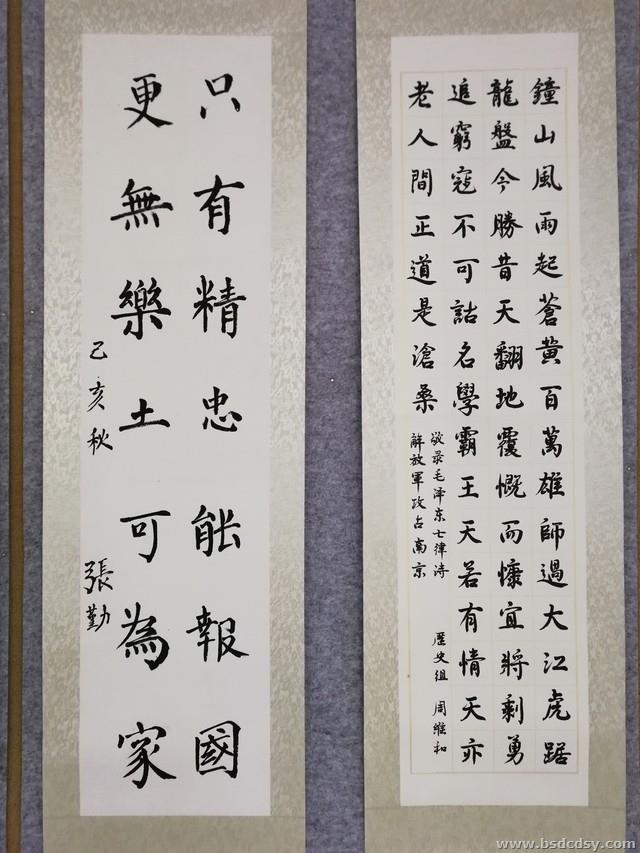 鐘山風雨起蒼黄百萬雄師過大江虎踞
龍盤今勝昔天翻地覆慨而慷宜將剩勇
追窮寇不可詁名學霸王天若有情天亦
老人間正道是滄桑
敬录毛泽东七律诗
解放軍攻占南京
歷史組 周維和
只有精忠能報國
更無樂土可為家
己亥秋 張勤
www.bsdcdsy.com